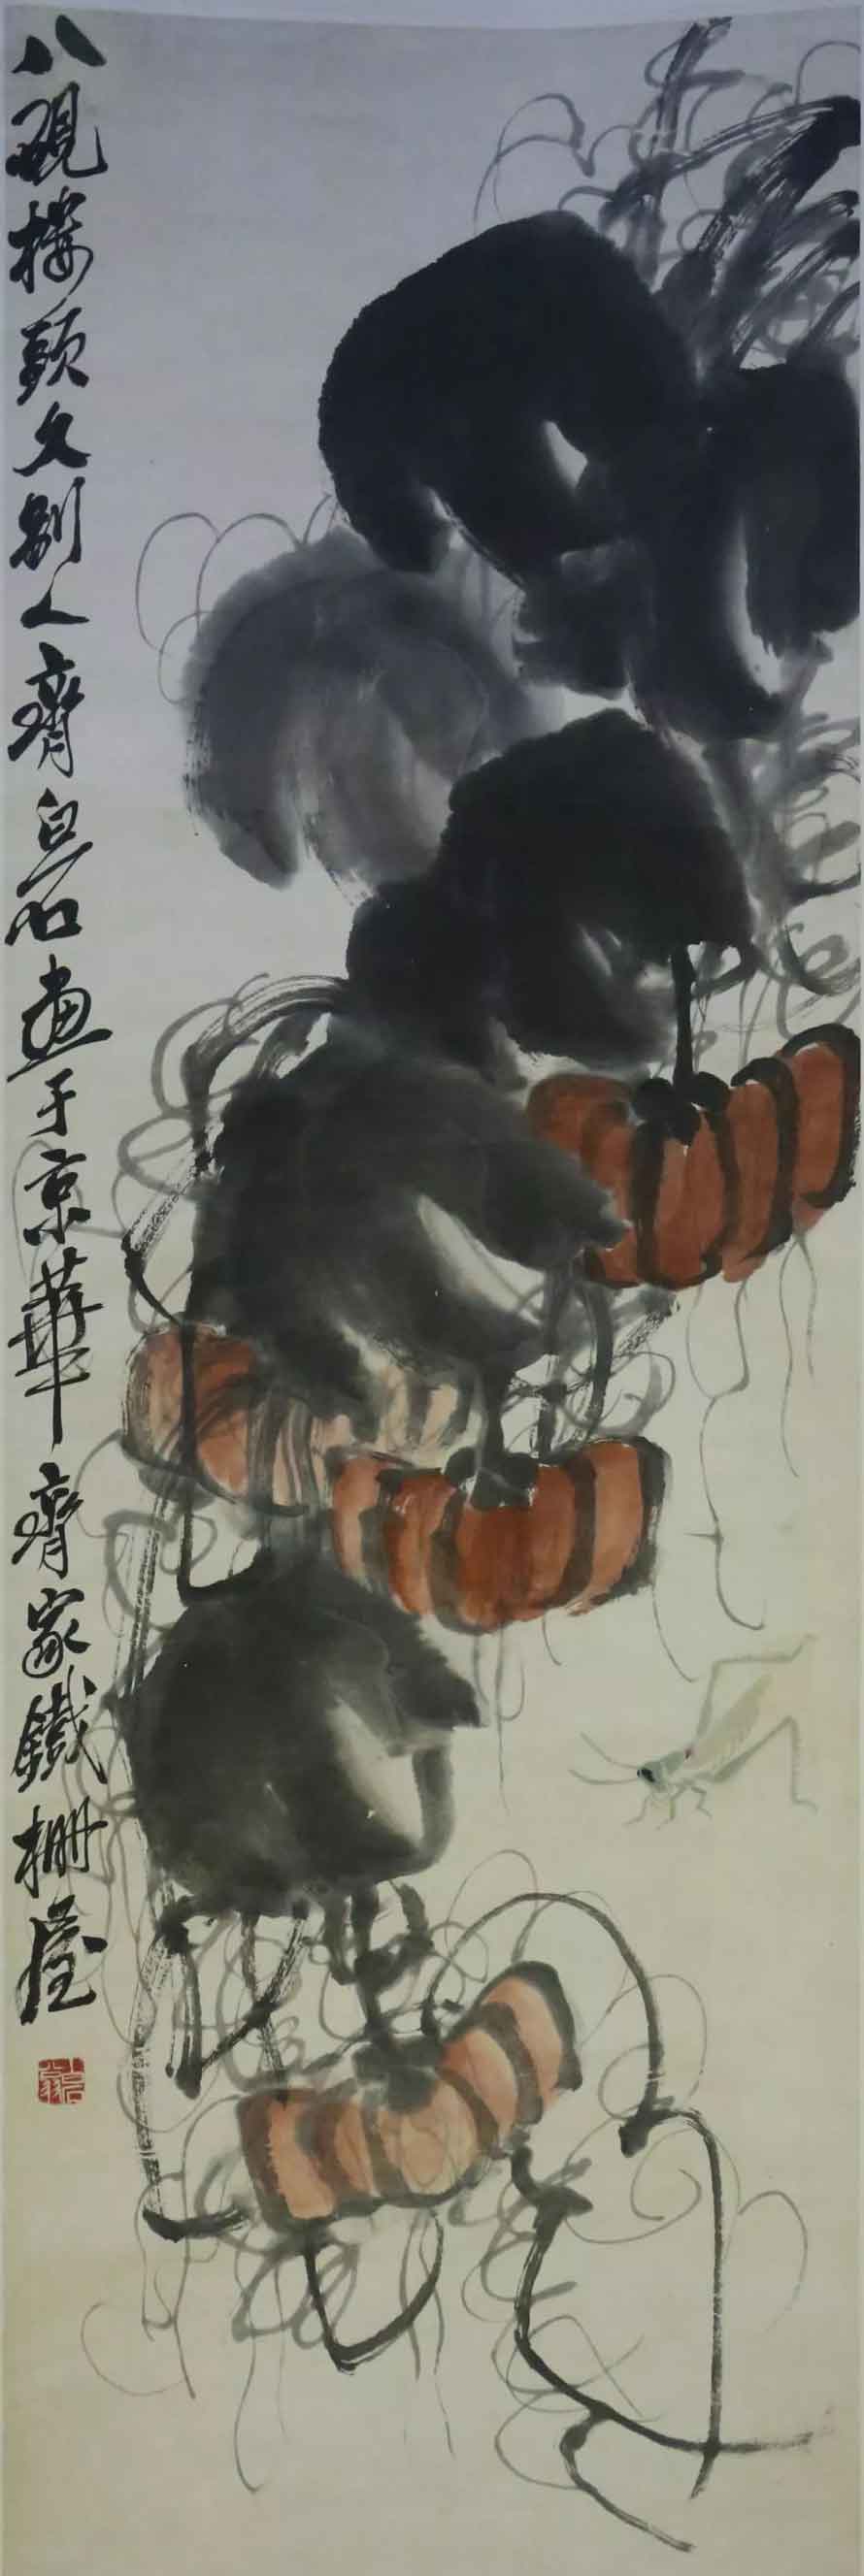 八硯樓頭久別人齊白石畫于京華齊家鐵柵屋